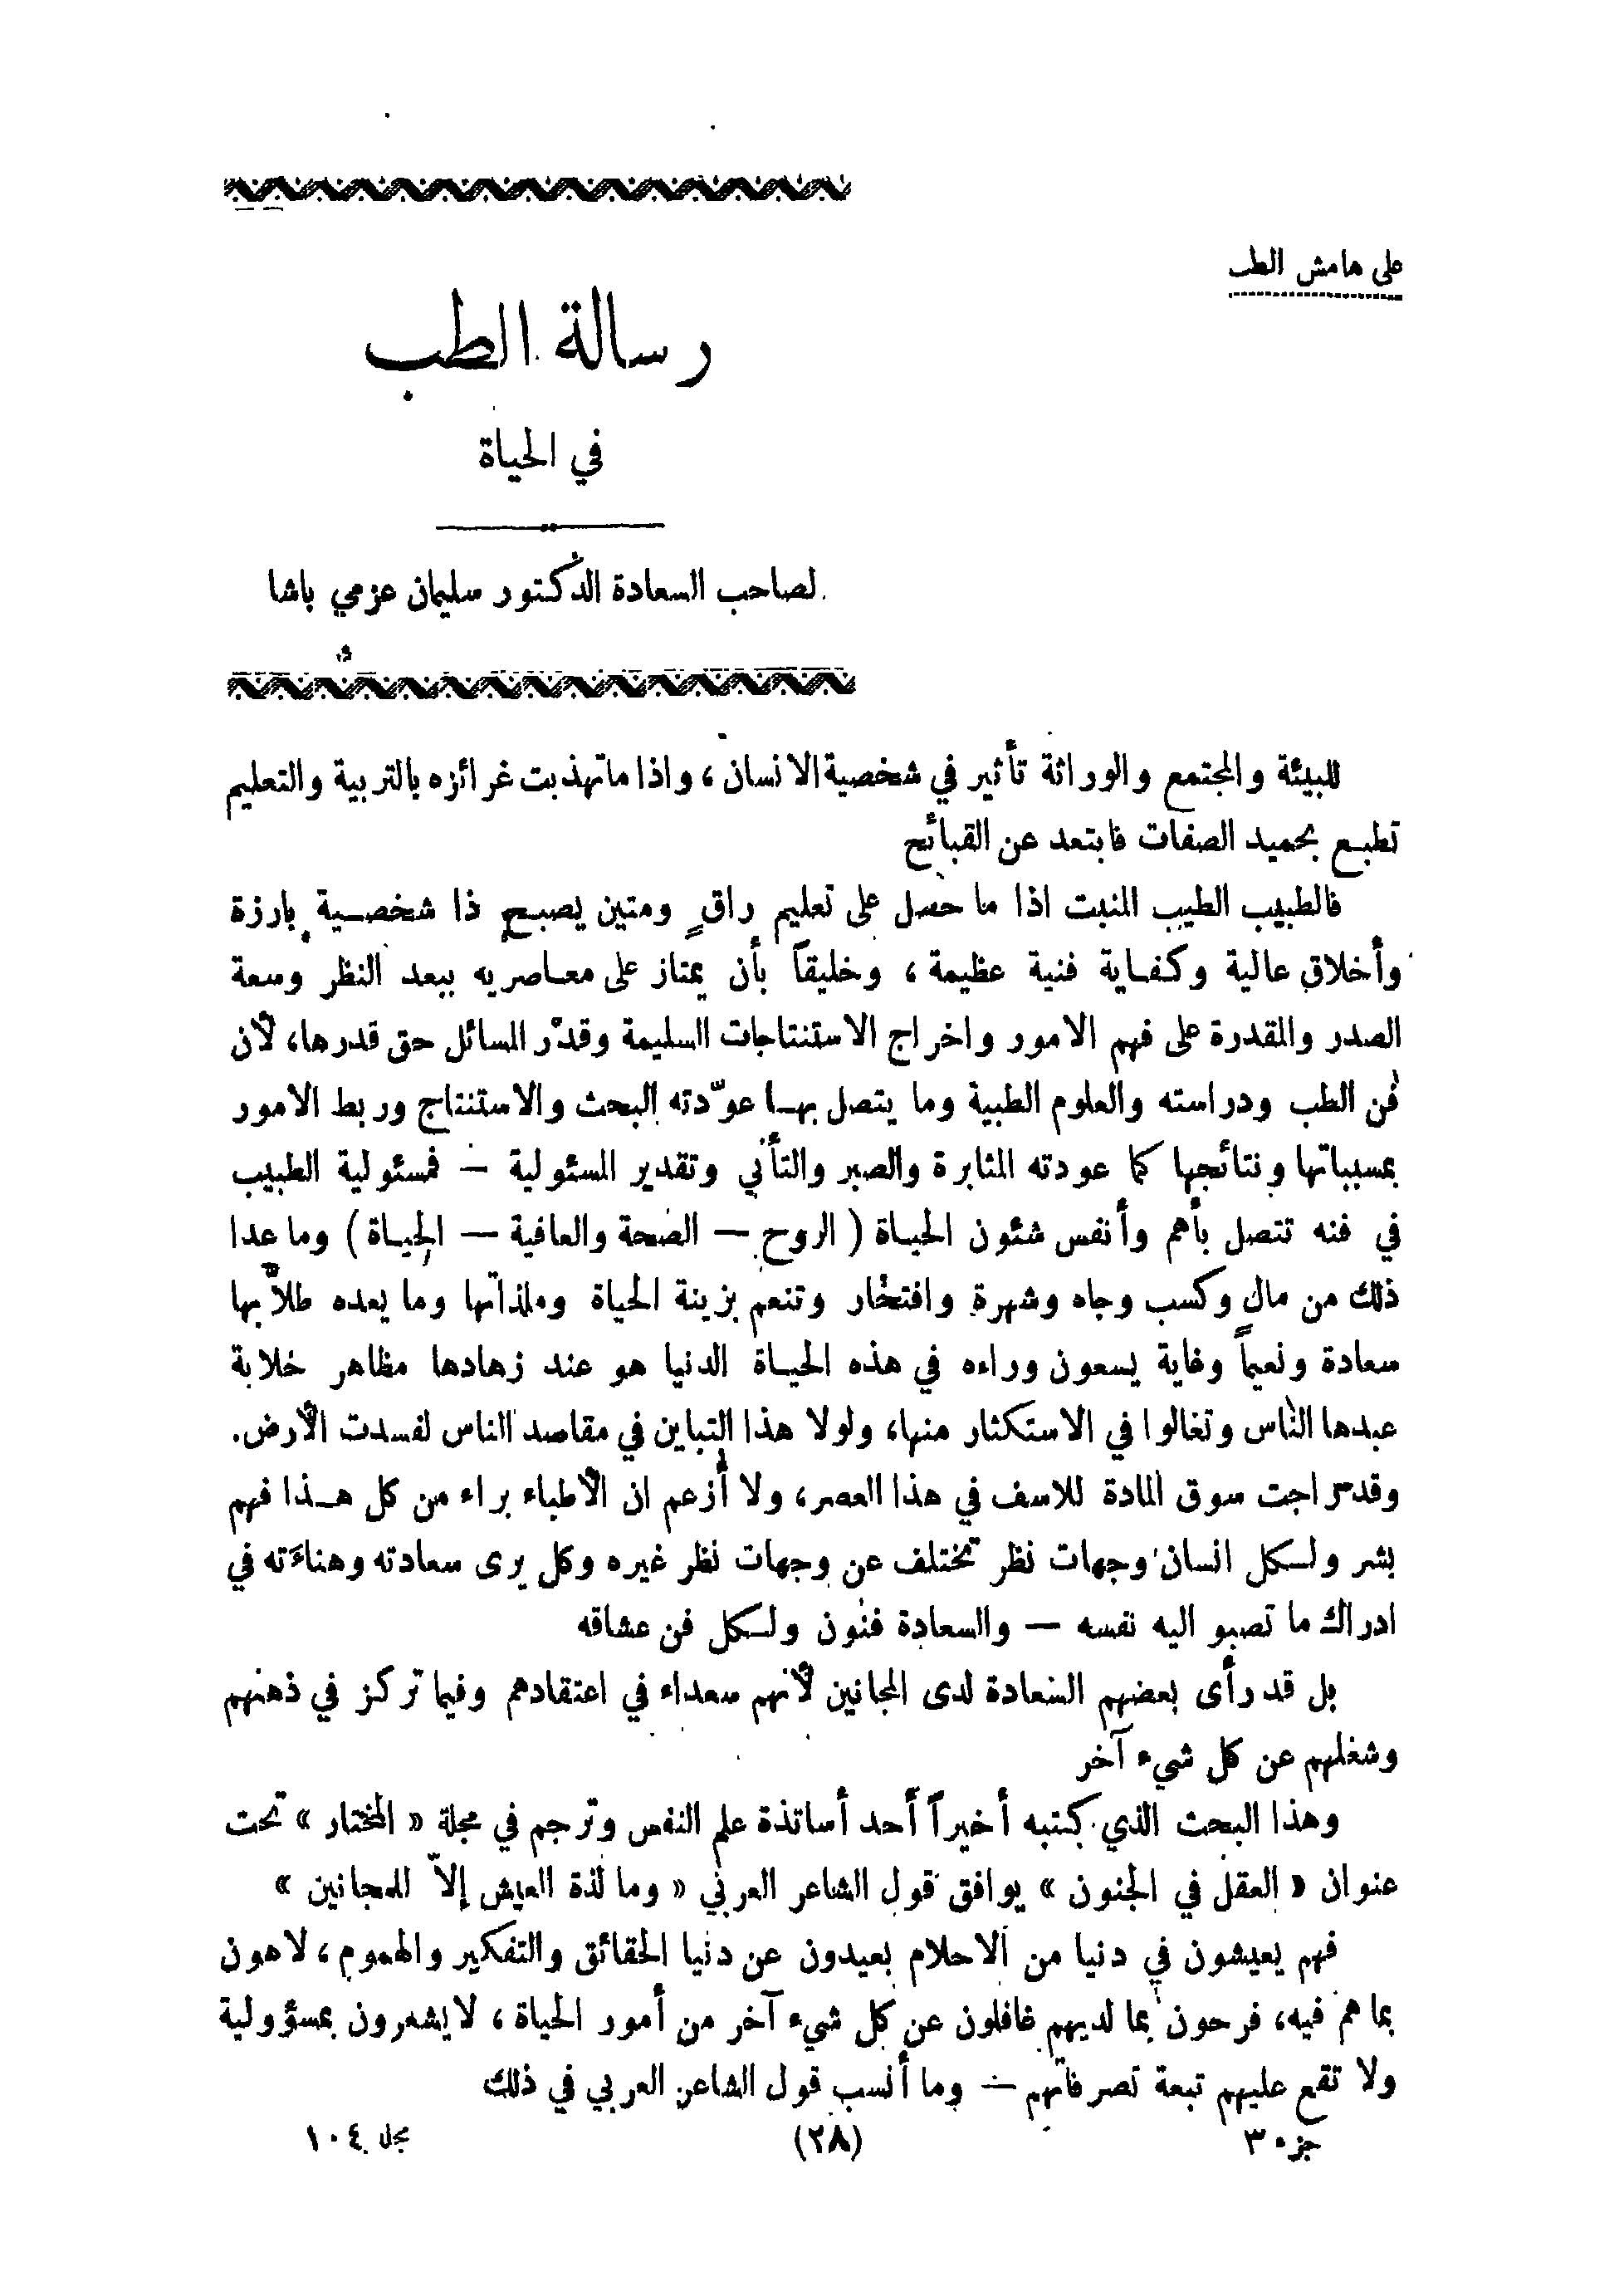 على هامش الطب
رسالة الطب
في الحياة
لصاحب السعادة الدكتور سليمان عزمي باشا
للبيئة والمجتمع والوراثة تأثير في شخصية الانسان، واذا ماتهذبت غرائزه بالتربية والتعليم
تطبع بحميد الصفات فابتعد عن القبائح
فالطبيب الطيب المنبت اذا ما حصل على تعليم راقٍ ومتين يصبح ذا شخصية بارزة
وأخلاق عالية وكفاية فنية عظيمة ، وخليقاً بأن يمتاز على معاصريه ببعد النظر وسعة
الصدر والمقدرة على فهم الامور واخراج الاستنتاجات السليمة وقدْر المسائل حق قدرها، لأن
فن الطب ودراسته والعلوم الطبية وما يتصل بها عوّدته البحث والاستنتاج وربط الامور
بمسبباتها ونتائجها كما عودته المثابرة والصبر والتأني وتقدير المسئولية — فمسئولية الطبيب
في فنه تتصل بأهم وأنفس شئون الحياة ( الروح — الصحة والعافية — الحياة ) وما عدا
ذلك من مال وكسب وجاه وشهرة وافتخار وتنعم بزينة الحياة وملذاتها وما يعده طلاّبها
سعادة ونعيماً وغاية يسعون وراءه في هذه الحياة الدنيا هو عند زهادها مظاهر خلابة
عبدها الناس وتغالوا في الاستكثار منها، ولولا هذا التباين في مقاصد الناس لفسدت الأرض.
وقد راجت سوق المادة للاسف في هذا العصر، ولا أزعم ان الأطباء براء من كل هذا فهم
بشر ولكل انسان وجهات نظر تختلف عن وجهات نظر غيره وكل يرى سعادته وهناءَته في
ادراك ما تصبو اليه نفسه — والسعادة فنون ولكل فن عشاقه
بل قد رأى بعضهم السعادة لدى المجانين لأنهم سعداء في اعتقادهم وفيما تركز في ذهنهم
وشغلهم عن كل شيء آخر
وهذا البحث الذي كتبه أخيراً أحد أساتذة علم النفس وترجم في مجلة « المختار » تحت
عنوان « العقل في الجنون » يوافق قول الشاعر العربي « وما لذة العيش إلاّ للمجانين »
فهم يعيشون في دنيا من الاحلام بعيدون عن دنيا الحقائق والتفكير والهموم ، لاهون
بما هم فيه، فرحون بما لديهم غافلون عن كل شيء آخر من أمور الحياة ، لايشعرون بمسؤولية
ولا تقع عليهم تبعة تصرفاتهم — وما أنسب قول الشاعر العربي في ذلك
جزء ٣ (٢٨) مجلد ١٠٤